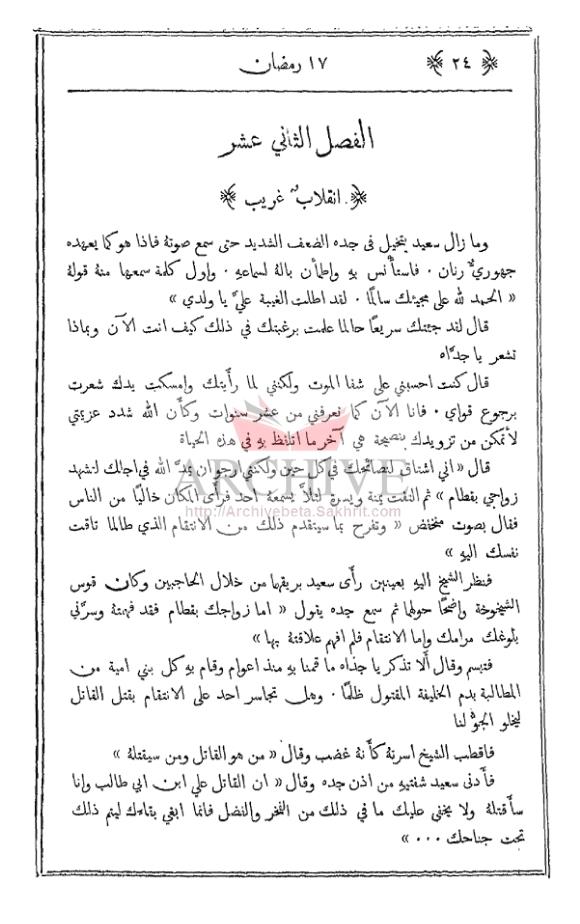 ١٧ رمضان
﴿ ٢٤ ﴾
الفصل الثاني عشر
﴿ انقلابٌ غريب ﴾
وما زال سعيد بتخيل في جده الضعف الشديد حتى سمع صوته فاذا هو كما يعهده
جهوريٌّ رنان ٠ فاستأنس به واطمأن باله لسماعه ٠ واول كلمة سمعها منه قوله
« الحمد لله على مجيئك سالمًا ٠ لقد اطلت الغيبة عليَّ يا ولدي »
قال لقد جئتك سريعًا حالما علمت برغبتك في ذلك كيف انت الآن وبماذا
تشعر يا جدَّاه
قال كنت احسبني على شفا الموت ولكنني لما رأيتك وامسكت يدك شعرت
برجوع قواي ٠ فانا الآن كما تعرفني من عشر سنوات وكأن الله شدد عزيمتي
لأتمكن من تزويدك بنصيحة هي آخر ما اتلفظ به في هذه الحياة
قال « اني اشتاق لنصائحك في كل حين ولكنني ارجو ان يمدَّ الله في اجلك لتشهد
زواجي بقطام » ثم التفت يمنة ويسرة لئلاَّ يسمعه احد فرأى المكان خاليًا من الناس
فقال بصوت منخفض « وتفرح بما سيتقدم ذلك من الانتقام الذي طالما تاقت
نفسك اليه »
فنظر الشيخ اليه بعينين رأى سعيد بريقهما من خلال الحاجبين وكان قوس
الشيخوخة واضحًا حولهما ثم سمع جده يقول « اما زواجك بقطام فقد فهمته وسرَّني
بلوغك مرامك واما الانتقام فلم افهم علاقته بها »
فتبسم وقال ألا تذكر يا جداه ما قمنا به منذ اعوام وقام به كل بني امية من
المطالبة بدم الخليفة المقتول ظلمًا ٠ وهل تجاسر احد على الانتقام بقتل القاتل
ليخلو الجوُّ لنا
فاقطب الشيخ اسرته كأنه غضب وقال « من هو القاتل ومن سيقتله »
فأدنى سعيد شفتيه من اذن جده وقال « ان القاتل علي ابن ابي طالب وانا
سأقتله ولا يخفى عليك ما في ذلك من الفخر والفضل فانما ابغي بقاءك ليتم ذلك
تحت جناحك ٠٠٠ »
ARCHIVE
http://Archivebeta.Sakhrit.com